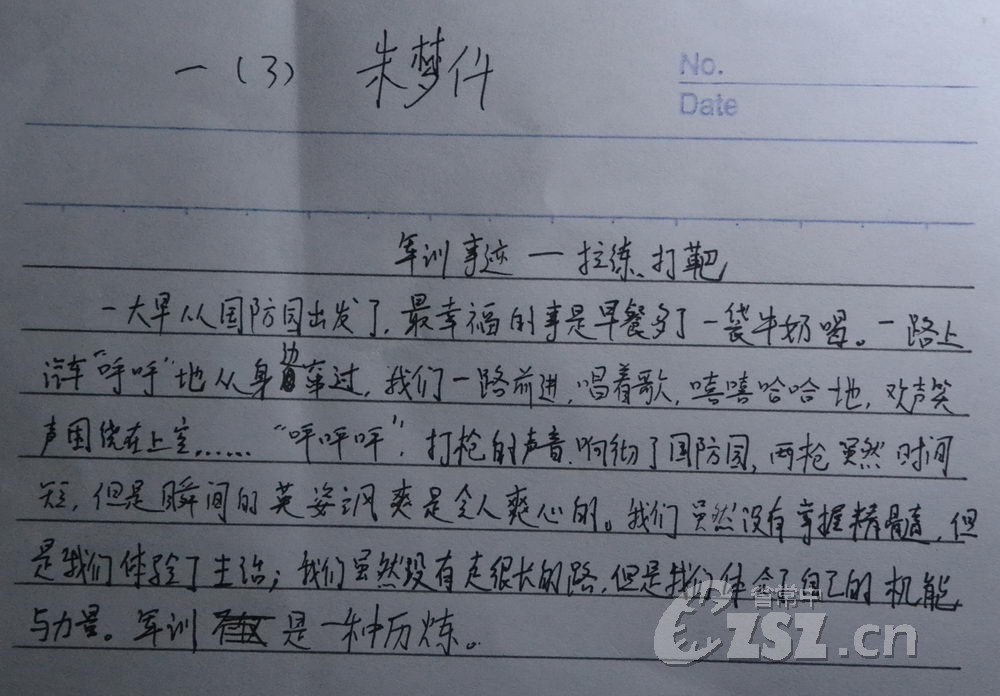 一(3) 朱梦仟
No.
Date
军训事迹一拉练、打靶
一大早从国防园出发了，最幸福的事是早餐多了一袋牛奶喝。一路上
汽车“呼呼”地从身边窜过，我们一路前进，唱着歌，嘻嘻哈哈地，欢声笑
声围绕在上空……“呯呯呯”，打枪的声音响彻了国防园，两枪虽然时间
短，但是瞬间的英姿飒爽是令人爽心的。我们虽然没有掌握精髓，但
是我们体验了生活；我们虽然没有走很长的路，但是我们体会了自己的机能
与力量。军训是一种历炼。
CZSZ.cn